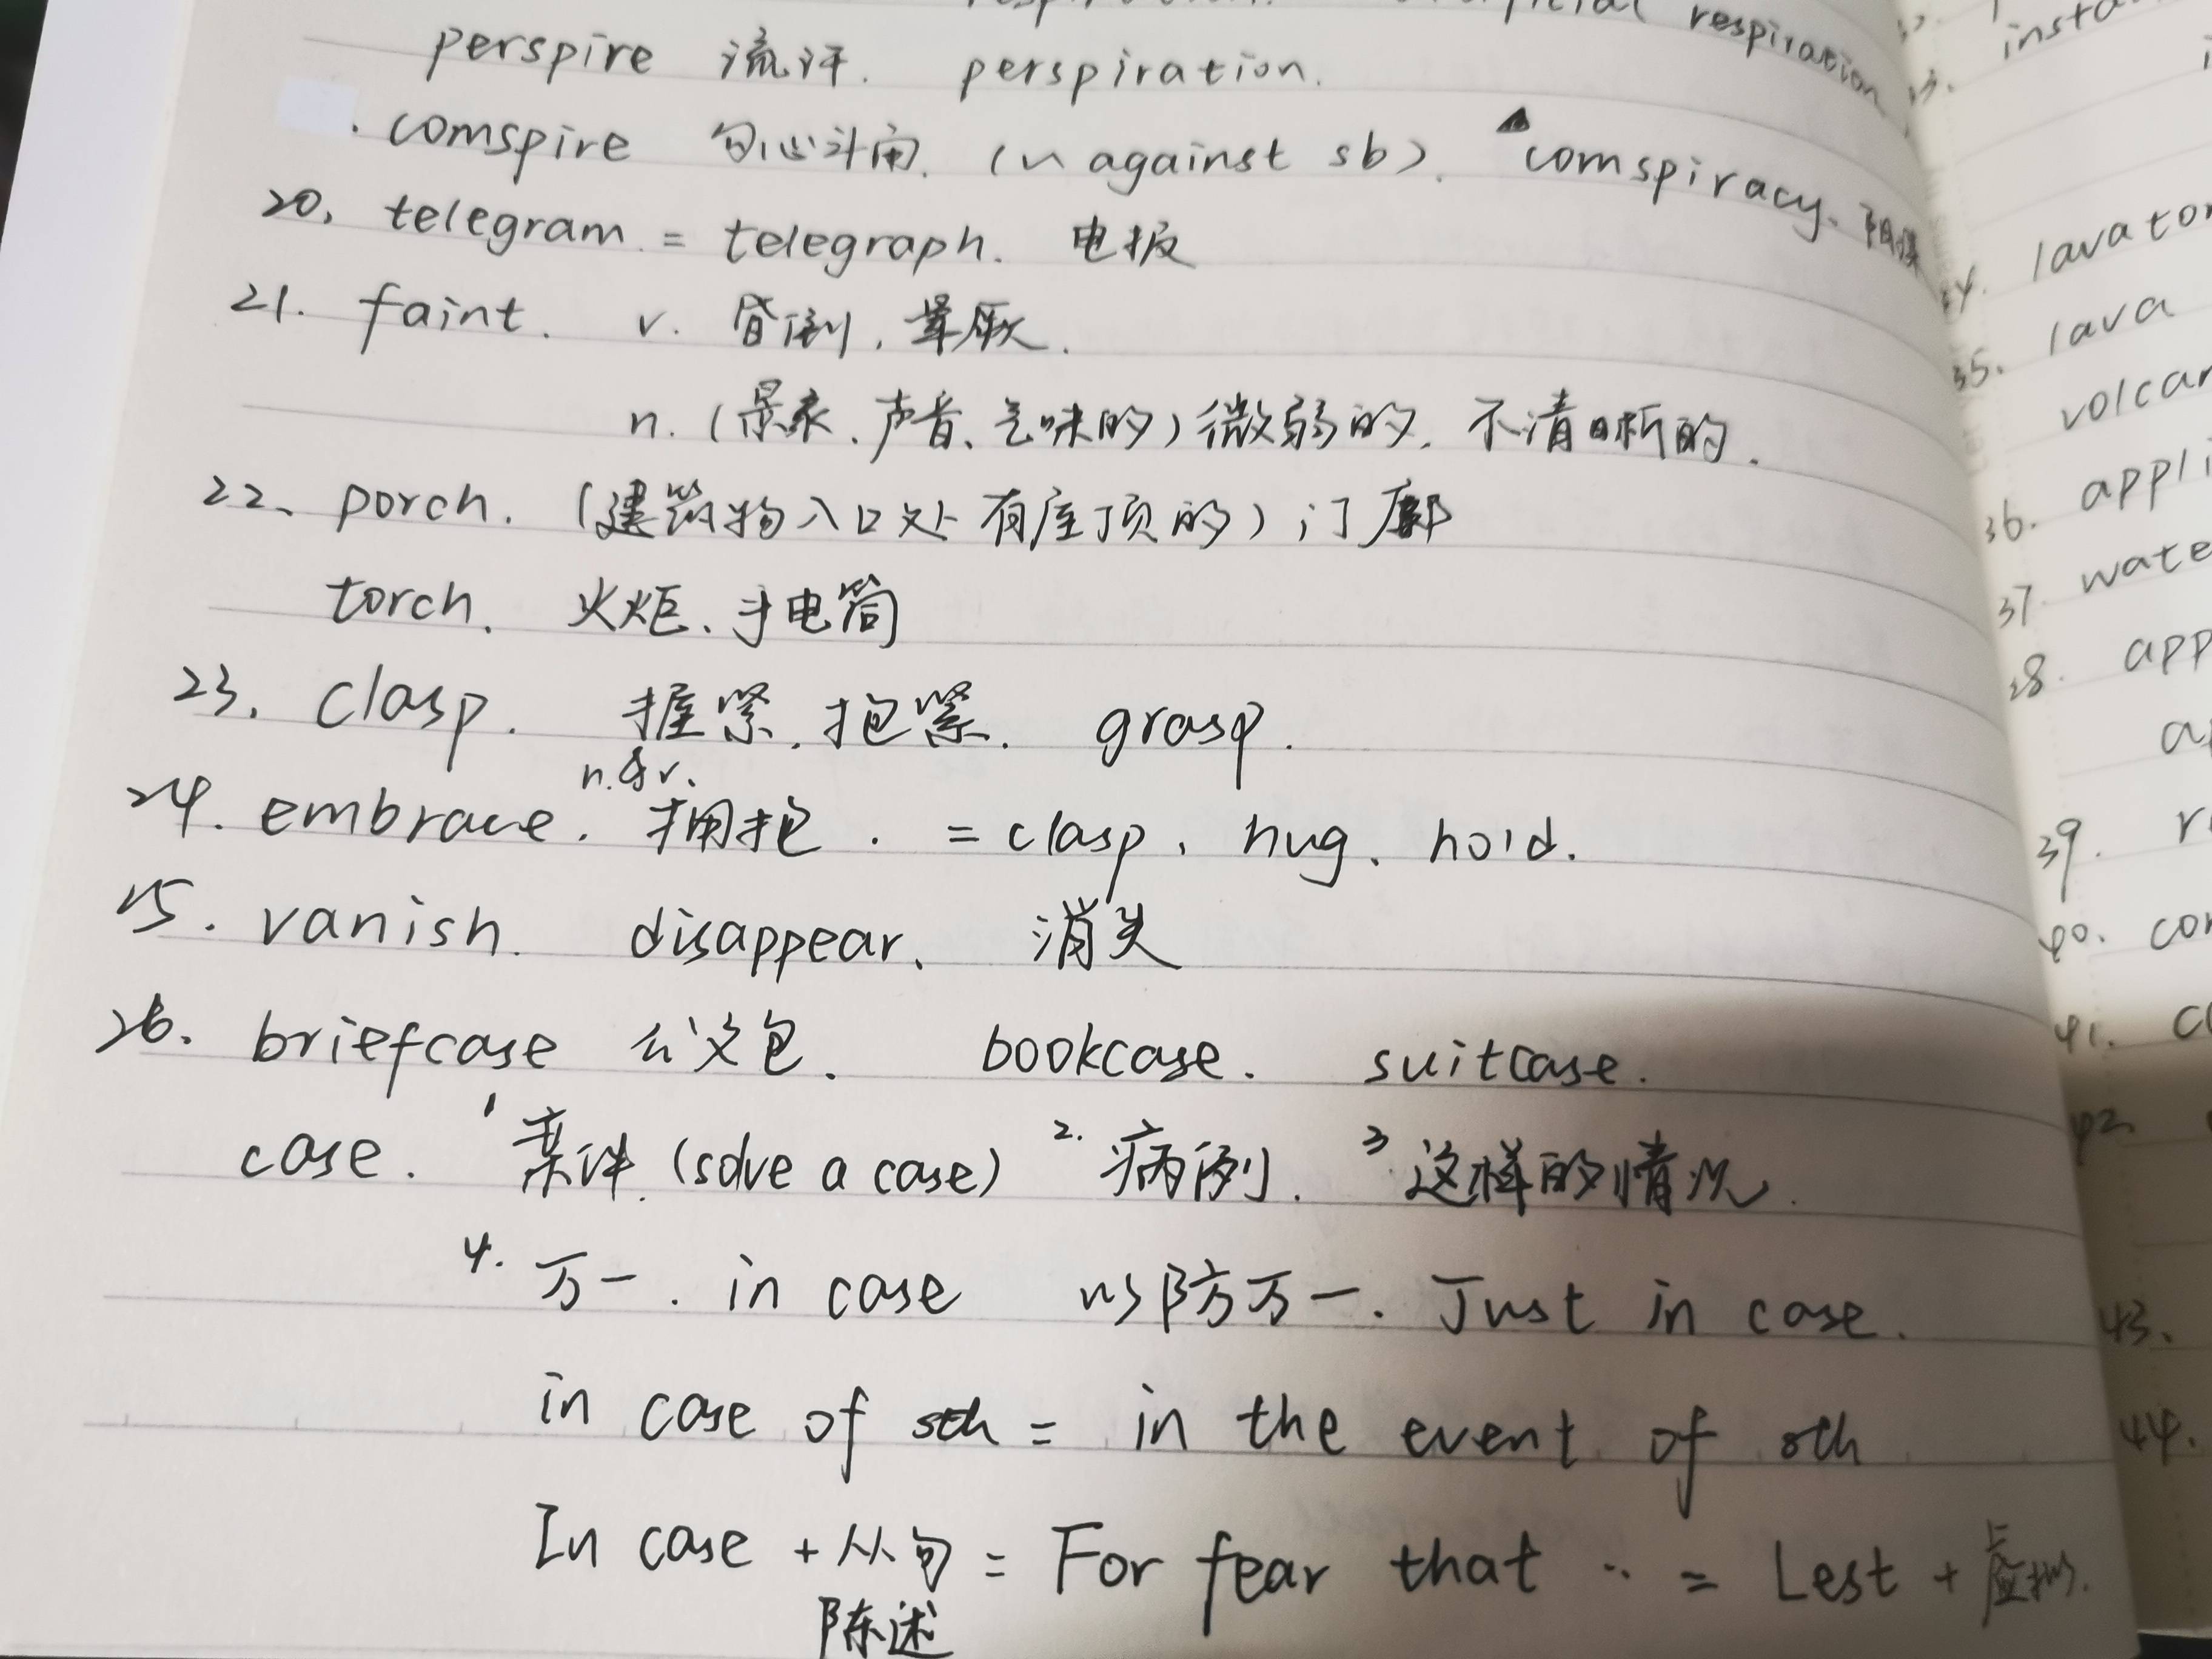 respiration
perspire 流汗. perspiration.
comspire 勾心斗角. (~ against sb). ▲comspiracy. 阴谋
20. telegram = telegraph. 电报
21. faint. v. 昏倒, 晕厥.
n. (景象、声音、气味的) 微弱的. 不清晰的.
22、porch. (建筑物入口处有屋顶的) 门廊
torch. 火炬、手电筒
23. clasp. 握紧. 抱紧. grasp.
n.&v.
24. embrace. 拥抱. = clasp、hug、hold.
25. vanish. disappear、 消失
26. briefcase 公文包. bookcase. suitcase.
case. 1 案件. (solve a case) 2. 病例. 3. 这样的情况.
4. 万一. in case 以防万一. Just in case.
in case of sth = in the event of sth
In case + 从句 = For fear that ·· = Lest + 虚拟.
陈述
lava
35.
36.
37.
39.
40.
41.
42.
43.
44.